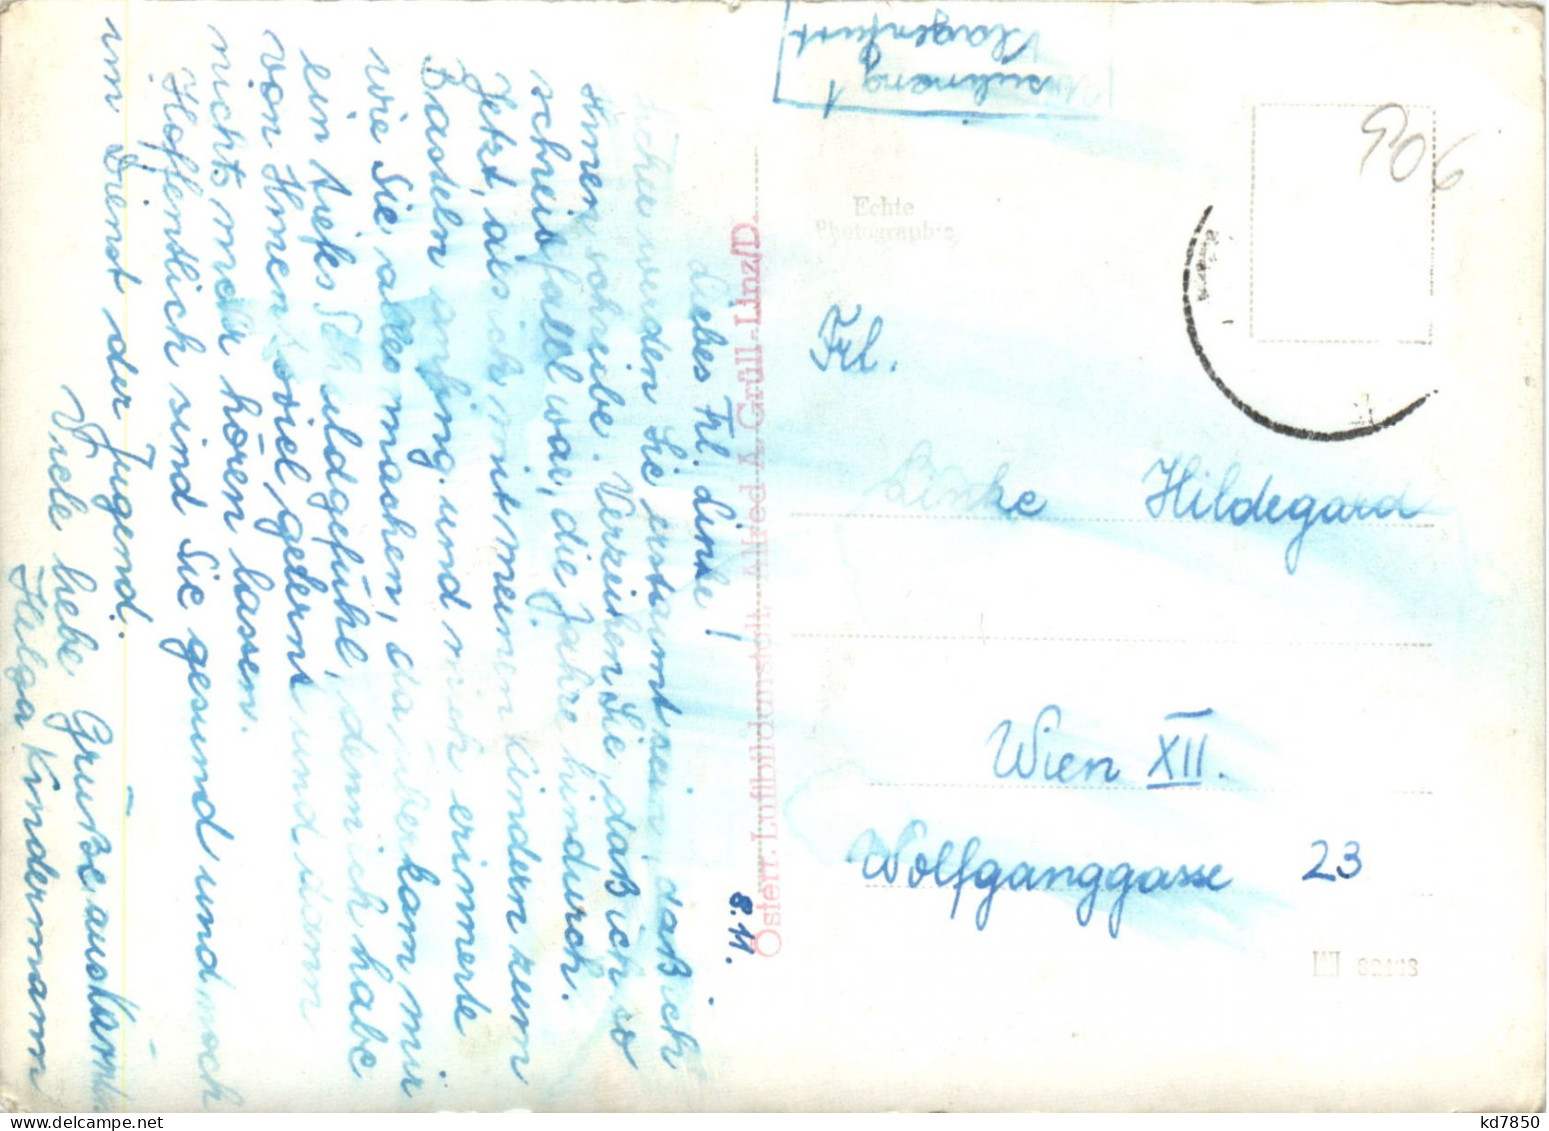 8.11.
Liebes Frl. Linke!
werden Sie erstaunt sein, daß ich
Ihnen schreibe. Verzeihen Sie, daß ich so
schreibfaul war, die Jahre hindurch.
Jetzt, als ich mit meinen Kindern zum
Basteln anfing und mich erinnerte
wie Sie alles machen, da überkam mir
ein tiefes Schuldgefühl, denn ich habe
von Ihnen soviel gelernt und dann
nichts mehr hören lassen.
Hoffentlich sind Sie gesund und noch
im Dienst der Jugend.
Viele liebe Grüße aus
Helga Kindermann
Österr. Luftbildanstalt, Alfred A. Grüll - Linz/D.
Klagenfurt
906
Echte
Photographie
Frl.
Linke Hildegard
Wien XII.
Wolfganggasse 23
kd7850